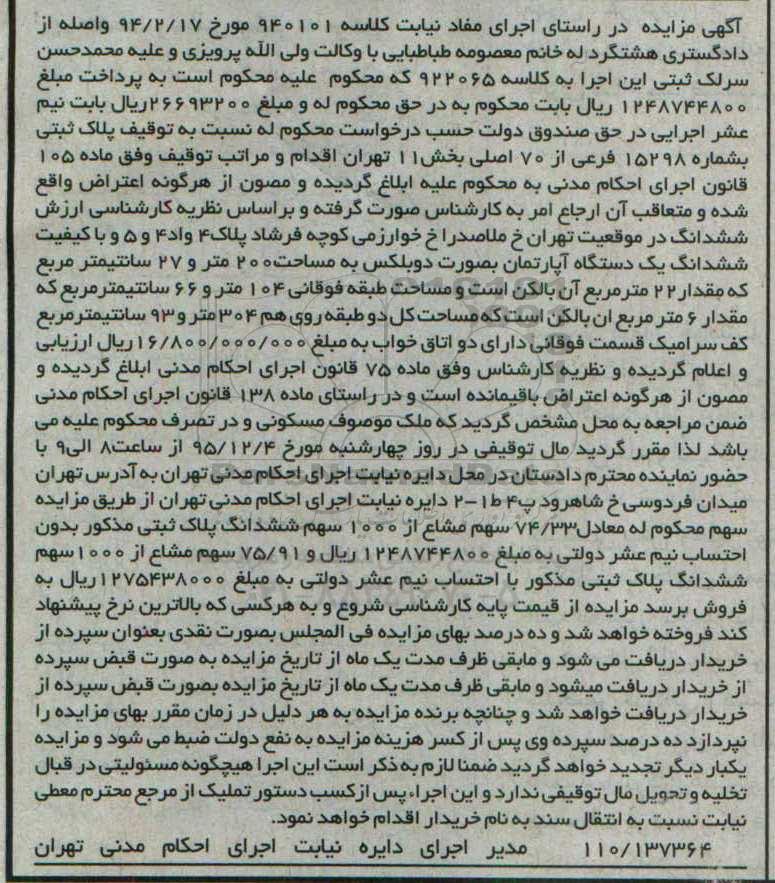 آگهی مزایده در راستای اجرای مفاد نیابت کلاسه ۹۴۰۱۰۱ مورخ ۹۴/۲/۱۷ واصله از
دادگستری هشتگرد له خانم معصومه طباطبایی با وکالت ولی الله پرویزی و علیه محمدحسن
سرلک ثبتی این اجرا به کلاسه ۹۲۲۰۶۵ که محکوم علیه محکوم است به پرداخت مبلغ
۱۲۴۸۷۴۴۸۰۰ ریال بابت محکوم به در حق محکوم له و مبلغ ۲۶۶۹۳۲۰۰ریال بابت نیم
عشر اجرایی در حق صندوق دولت حسب درخواست محکوم له نسبت به توقیف پلاک ثبتی
بشماره ۱۵۲۹۸ فرعی از ۷۰ اصلی بخش۱۱ تهران اقدام و مراتب توقیف وفق ماده ۱۰۵
قانون اجرای احکام مدنی به محکوم علیه ابلاغ گردیده و مصون از هرگونه اعتراض واقع
شده و متعاقب آن ارجاع امر به کارشناس صورت گرفته و بر اساس نظریه کارشناسی ارزش
ششدانگ در موقعیت تهران خ ملاصدرا خ خوارزمی کوچه فرشاد پلاک۴ واد۴ و ۵ و با کیفیت
ششدانگ یک دستگاه آپارتمان بصورت دوبلکس به مساحت۲۰۰ متر و ۲۷ سانتیمتر مربع
که مقدار۲۲ مترمربع آن بالکن است و مساحت طبقه فوقانی ۱۰۴ متر و ۶۶ سانتیمترمربع که
مقدار ۶ متر مربع ان بالکن است که مساحت کل دو طبقه روی هم ۳۰۴ متر و ۹۳ سانتیمترمربع
کف سرامیک قسمت فوقانی دارای دو اتاق خواب به مبلغ ۱۶/۸۰۰/۰۰۰/۰۰۰ریال ارزیابی
و اعلام گردیده و نظریه کارشناس وفق ماده ۷۵ قانون اجرای احکام مدنی ابلاغ گردیده و
مصون از هرگونه اعتراض باقیمانده است و در راستای ماده ۱۳۸ قانون اجرای احکام مدنی
ضمن مراجعه به محل مشخص گردید که ملک موصوف مسکونی و در تصرف محکوم علیه می
باشد لذا مقرر گردید مال توقیفی در روز چهارشنبه مورخ ۹۵/۱۲/۴ از ساعت۸ الی۹ با
حضور نماینده محترم دادستان در محل دایره نیابت اجرای احکام مدنی تهران به آدرس تهران
میدان فردوسی خ شاهرود پ۴ ط۱-۲ دایره نیابت اجرای احکام مدنی تهران از طریق مزایده
سهم محکوم له معادل۷۴/۳۳ سهم مشاع از ۱۰۰۰ سهم ششدانگ پلاک ثبتی مذکور بدون
احتساب نیم عشر دولتی به مبلغ ۱۲۴۸۷۴۴۸۰۰ ریال و ۷۵/۹۱ سهم مشاع از ۱۰۰۰سهم
ششدانگ پلاک ثبتی مذکور با احتساب نیم عشر دولتی به مبلغ ۱۲۷۵۴۳۸۰۰۰ریال به
فروش برسد مزایده از قیمت پایه کارشناسی شروع و به هرکسی که بالاترین نرخ پیشنهاد
کند فروخته خواهد شد و ده درصد بهای مزایده فی المجلس بصورت نقدی بعنوان سپرده از
خریدار دریافت می شود و مابقی ظرف مدت یک ماه از تاریخ مزایده به صورت قبض سپرده
از خریدار دریافت میشود و مابقی ظرف مدت یک ماه از تاریخ مزایده بصورت قبض سپرده از
خریدار دریافت خواهد شد و چنانچه برنده مزایده به هر دلیل در زمان مقرر بهای مزایده را
نپردازد ده درصد سپرده وی پس از کسر هزینه مزایده به نفع دولت ضبط می شود و مزایده
یکبار دیگر تجدید خواهد گردید ضمنا لازم به ذکر است این اجرا هیچگونه مسئولیتی در قبال
تخلیه و تحویل مال توقیفی ندارد و این اجراء پس ازکسب دستور تملیک از مرجع محترم معطی
نیابت نسبت به انتقال سند به نام خریدار اقدام خواهد نمود.
۱۱۰/۱۳۷۳۶۴ مدیر اجرای دایره نیابت اجرای احکام مدنی تهران